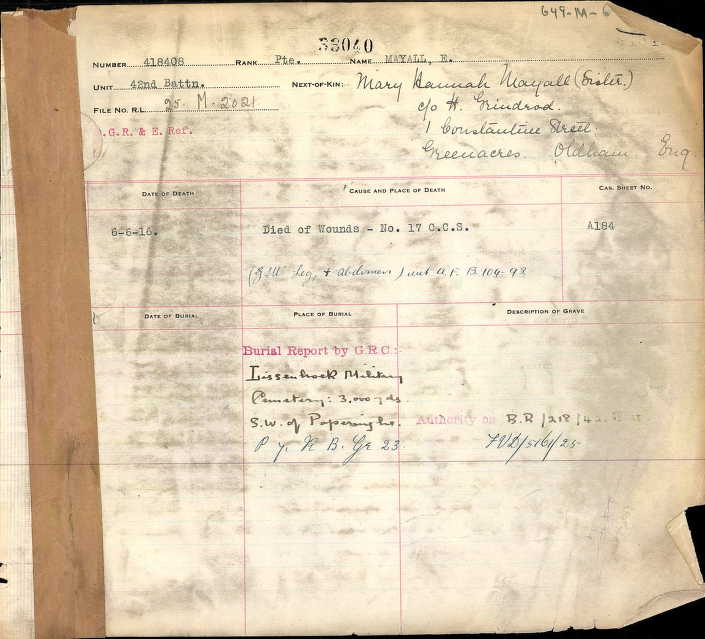 649-M-6
33040
NUMBER 418408 RANK Pte. NAME MAYALL, E.
UNIT 42nd Battn. NEXT-OF-KIN: Mary Hannah Mayall (Sister.)
c/o H. Grindrod.
FILE NO. R.L. 25. M. 2021
1 Constantine Street.
.G.R. & E. Ref.
Greenacres. Oldham Eng.
DATE OF DEATH CAUSE AND PLACE OF DEATH CAS. SHEET NO.
6-6-16. Died of Wounds - No. 17 C.C.S. A184
(G.S.W. Leg, & abdomen) B 104-98
DATE OF BURIAL PLACE OF BURIAL DESCRIPTION OF GRAVE
Burial Report by G.R.C:-
Lissenhoek Military
Cemetery: 3,000 yds.
S.W. of Poperinghe. Authority on B.R/218/42
P. R B. Gr 23.